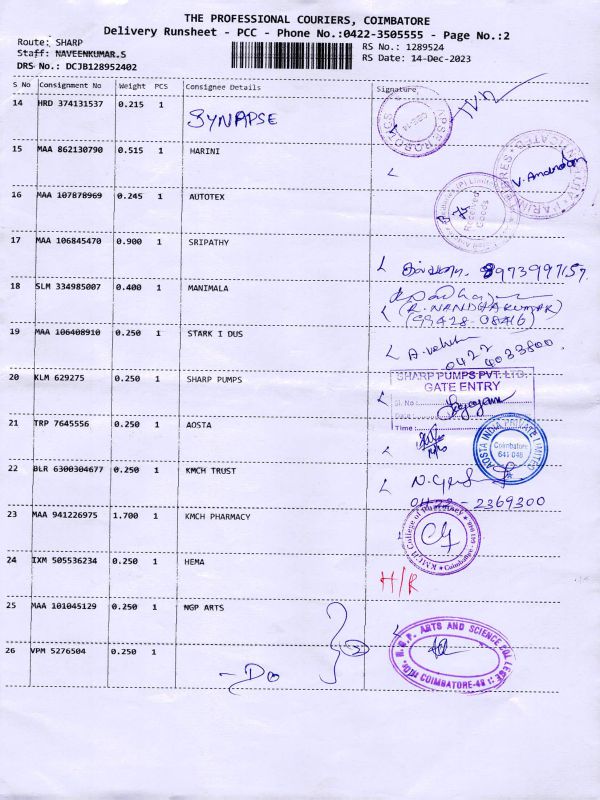 THE PROFESSIONAL COURIERS, COIMBATORE
Delivery Runsheet - PCC - Phone No.:0422-3505555 - Page No.:2
Route: SHARP
Staff: NAVEENKUMAR.S
DRS No.: DCJB128952402
RS No.: 1289524
RS Date: 14-Dec-2023
S No Consignment No Weight PCS Consignee Details Signature
14 HRD 374131537 0.215 1 SYNAPSE
15 MAA 862130790 0.515 1 HARINI
V. Anandan
16 MAA 107878969 0.245 1 AUTOTEX
Received Goods
17 MAA 106845470 0.900 1 SRIPATHY
9973997157
18 SLM 334985007 0.400 1 MANIMALA
(R. NANDHAKUMAR)
(99428-08416)
19 MAA 106408910 0.250 1 STARK I DUS
0422
4033800
20 KLM 629275 0.250 1 SHARP PUMPS
SHARP PUMPS PVT. LTD.
GATE ENTRY
Sl. No.:
Time:
21 TRP 7645556 0.250 1 AOSTA
AOSTA INDIA PRIVATE LIMITED
Coimbatore
641 048
22 BLR 6300304677 0.250 1 KMCH TRUST
0422-2369300
23 MAA 941226975 1.700 1 KMCH PHARMACY
KMCH College of Pharmacy
Coimbatore
24 IXM 505536234 0.250 1 HEMA
H/R
25 MAA 101045129 0.250 1 NGP ARTS
26 VPM 5276504 0.250 1 -Do
2
N.G.P. ARTS AND SCIENCE COLLEGE
COIMBATORE-48